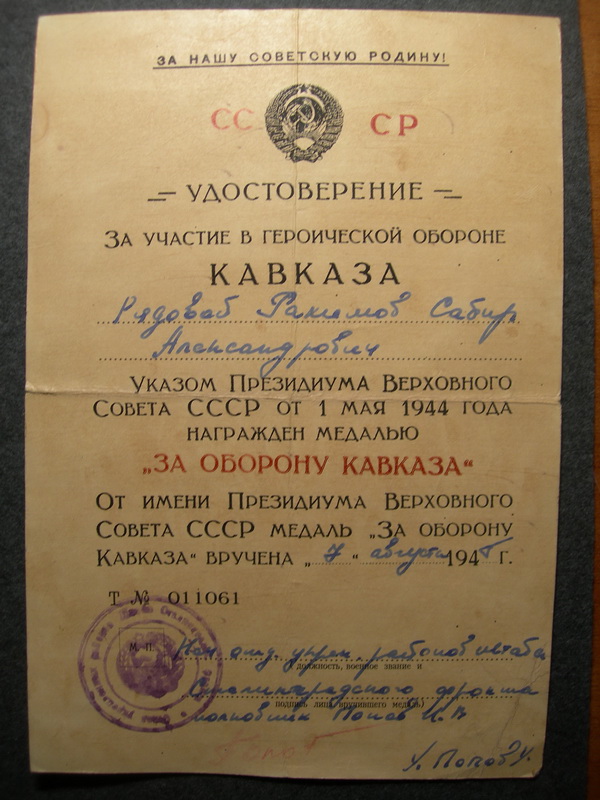 ЗА НАШУ СОВЕТСКУЮ РОДИНУ!
СС СР
УДОСТОВЕРЕНИЕ
ЗА УЧАСТИЕ В ГЕРОИЧЕСКОЙ ОБОРОНЕ
КАВКАЗА
Рядовой Рахимов Сабир
Александрович
УКАЗОМ ПРЕЗИДИУМА ВЕРХОВНОГО
СОВЕТА СССР ОТ 1 МАЯ 1944 ГОДА
НАГРАЖДЕН МЕДАЛЬЮ
„ЗА ОБОРОНУ КАВКАЗА“
ОТ ИМЕНИ ПРЕЗИДИУМА ВЕРХОВНОГО
СОВЕТА СССР МЕДАЛЬ „ЗА ОБОРОНУ
КАВКАЗА“ ВРУЧЕНА „7“ августа 1945 Г.
Т № 011061
М. П.
Нач. отд. укреп. районов штаба
должность, военное звание и
Сталинградского фронта
подпись лица, вручившего медаль)
полковник Попов И. В
Попов